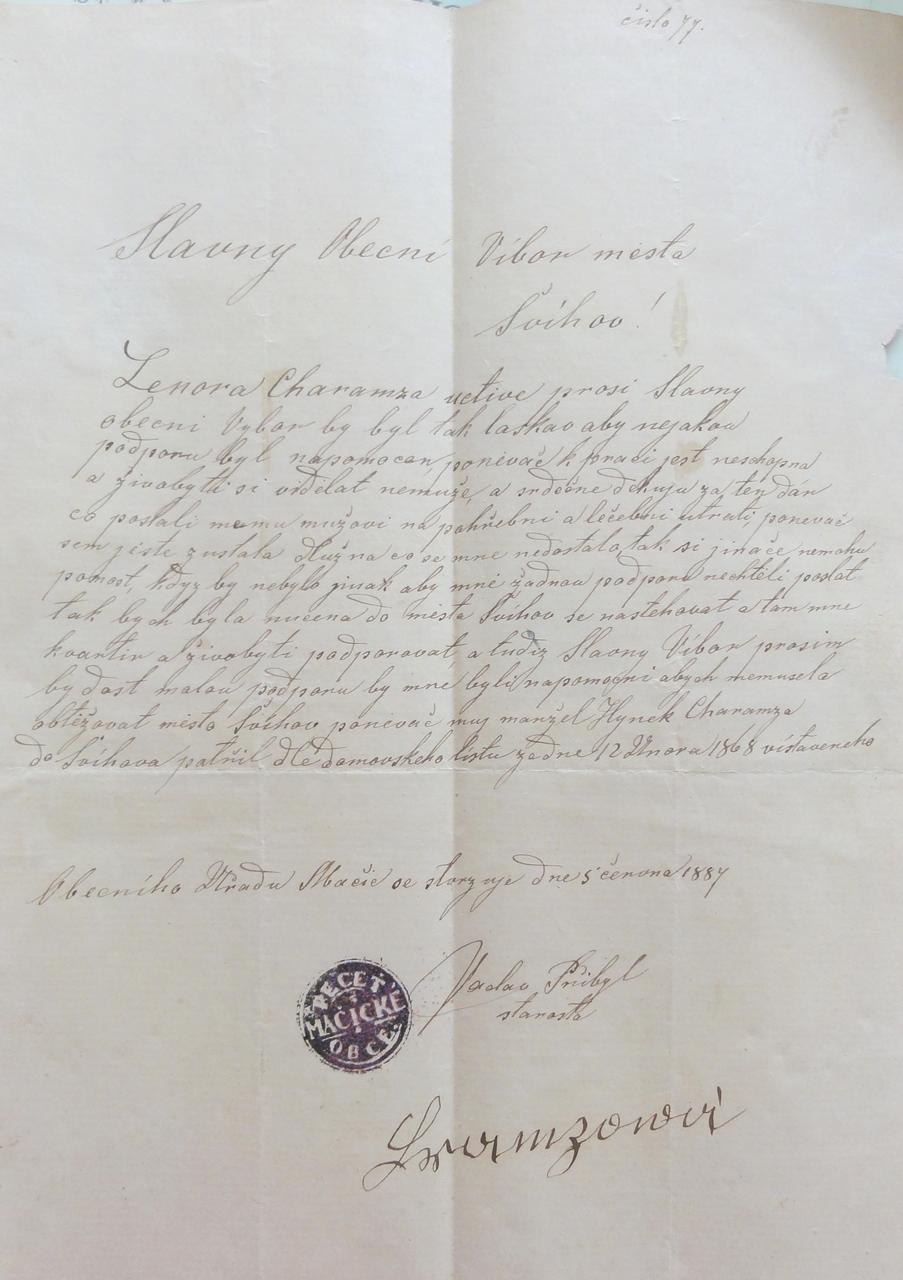 číslo 77.
Slavny Obecní Víbor města
Švíhov!
Lenora Charamza uctive prosi Slavny
obecni Vybor by byl tak laskav aby nejakou
podporu byl napomocen ponevač k praci jest neschopna
a živobyti si viďelat nemuže, a srdečne děkuju za ten dán
co poslali memu mužovi na pohřebni a lěčebni utratu, ponevač
sem ješte zustala dlužna co se mne nedostalo, tak si jinače nemohu
pomost, kdyz by nebylo jinak aby mně žadnou podporu nechtěli poslat
tak bych byla nucena do města Švihov se nastehovat a tam mne
kvartir a živobyti podporovat a tudiz Slavny Víbor prosim
by dost malou podporu by mne byli napomocni abych nemusela
obtěžovat město Švíhov ponevač muj manžel Hynek Charamza
do Švíhova patřil dle domovskeho listu ze dne 12 Unora 1868 vístaveneho
Obecního Uřadu Mačic se storzuje dne 5 června 1887
Vaclav Přibyl
starosta
PEČEŤ
MAČICKÉ
OBCE